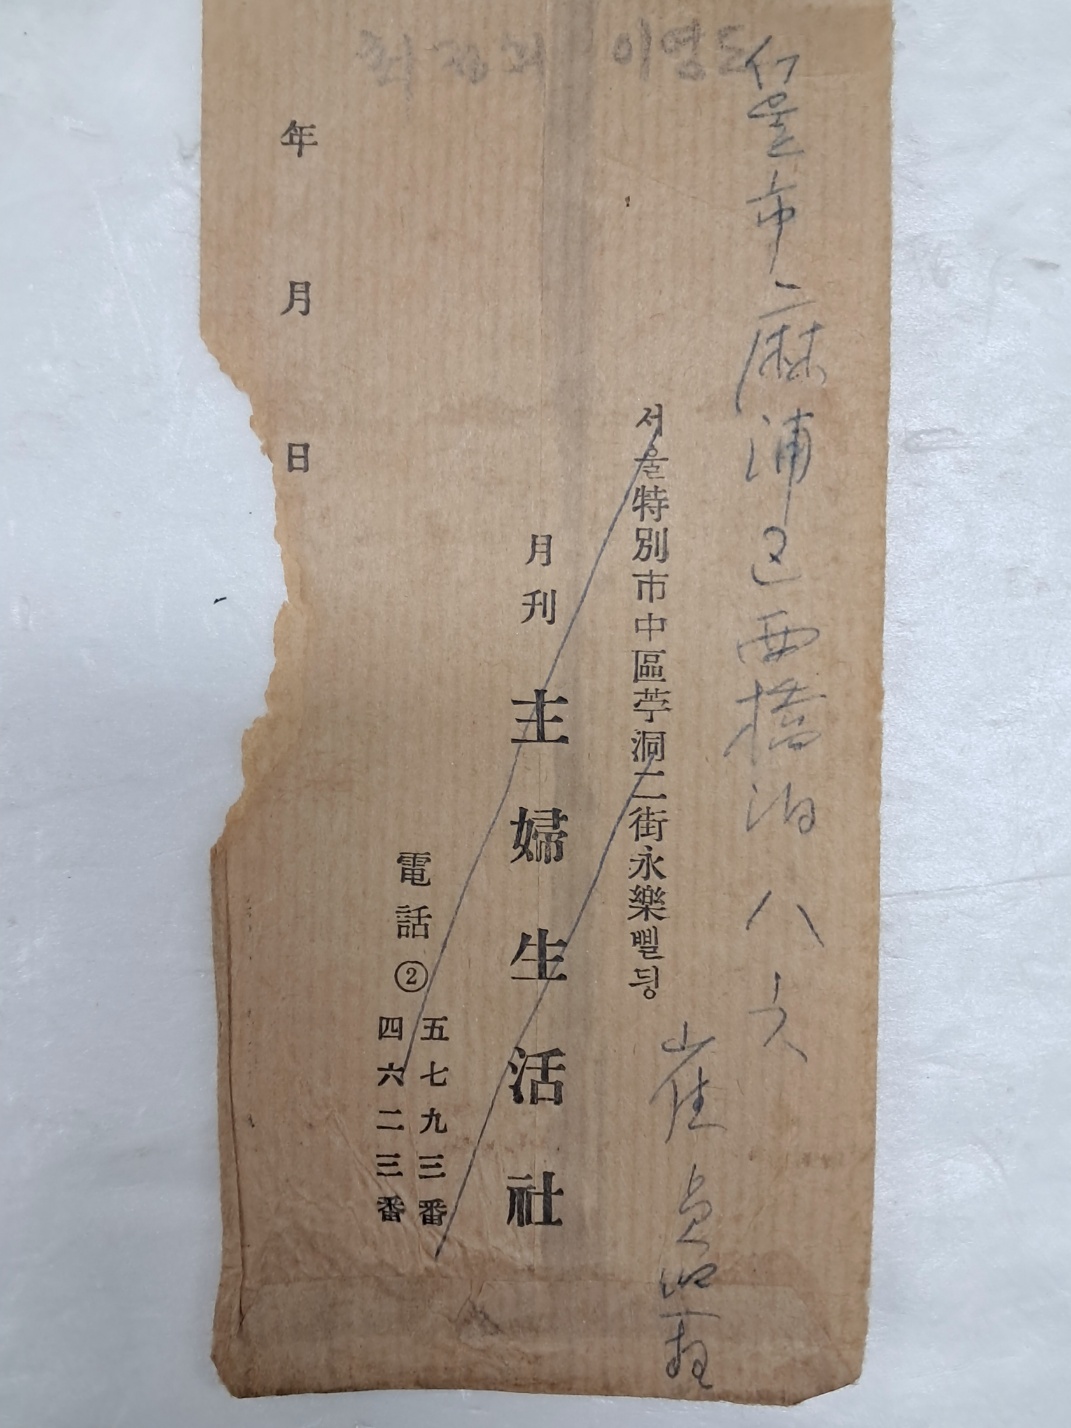 최정희 이영도
서울市 麻浦区 西橋洞 八六
崔貞熙
서울特別市中區苧洞二街永樂삘딍
月刊 主婦生活社
電話②
五七九三番
四六二三番
年 月 日